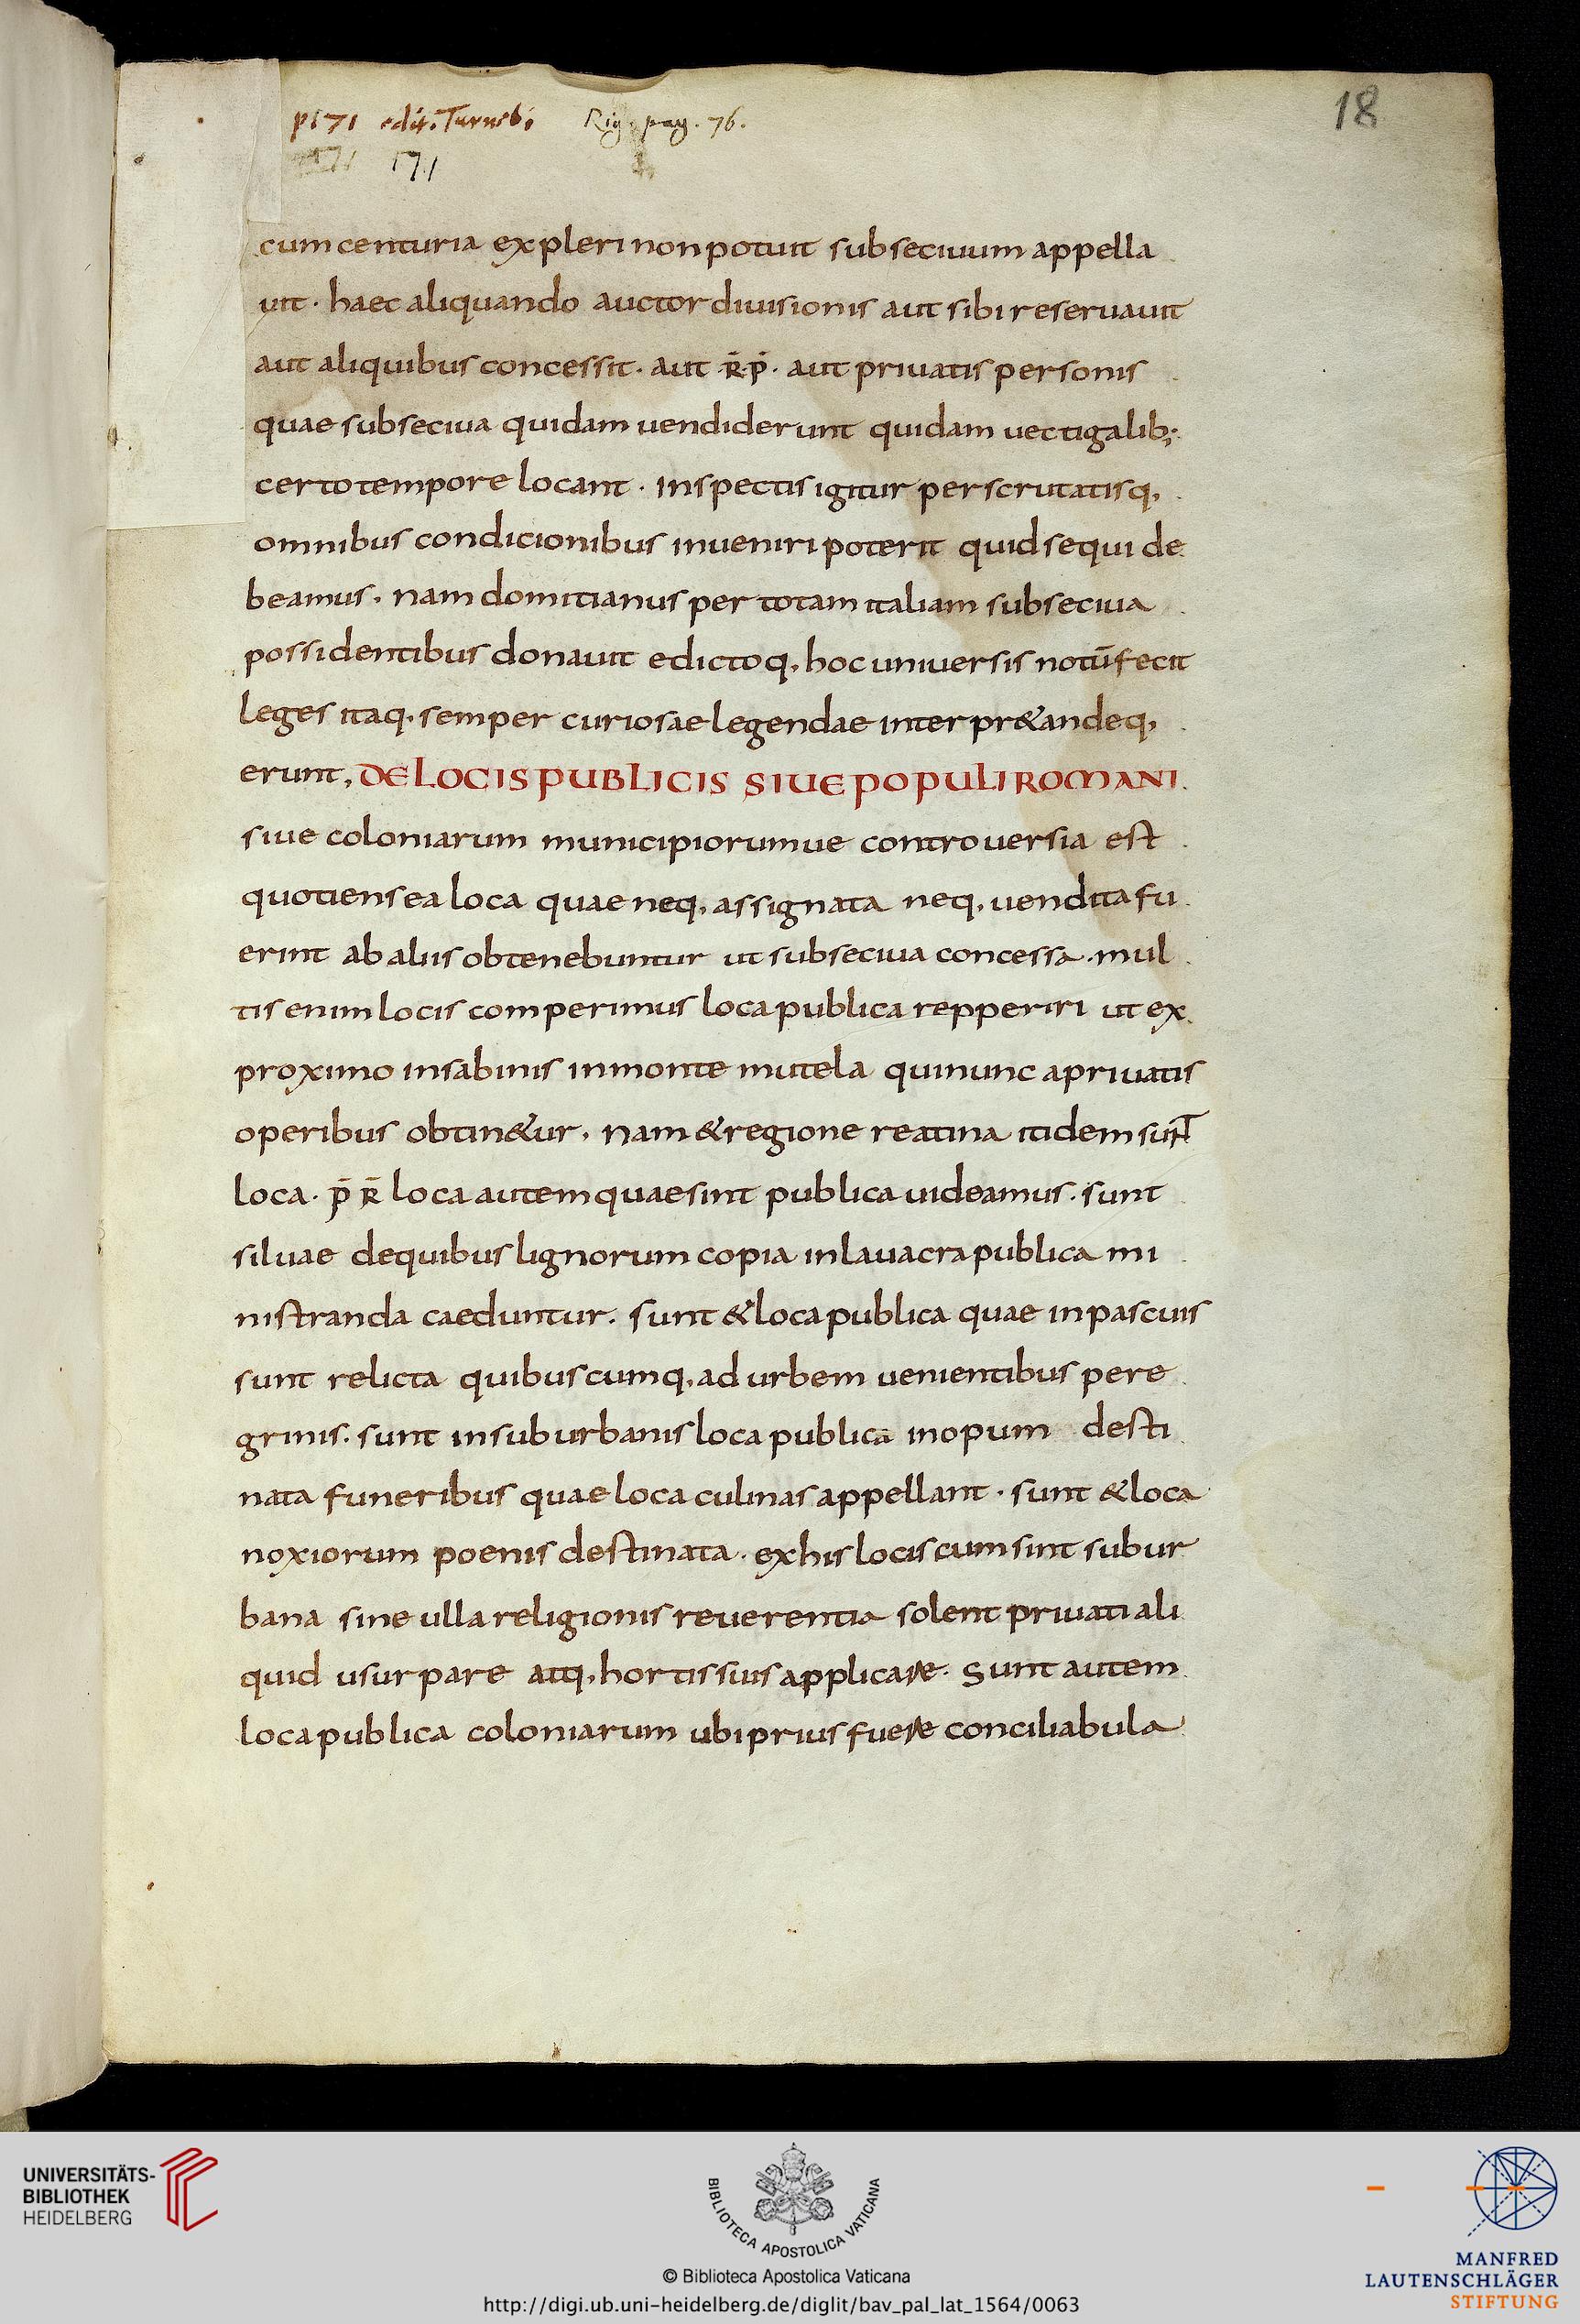 p 171 edit. Turneb. Rig. pag. 76.
18
171
cum centuria expleri non potuit subseciuum appella
uit · haec aliquando auctor diuisionis aut sibi reseruauit
aut aliquibus concessit · aut ·R̄·P̄· aut priuatis personis
quae subseciua quidam uendiderunt quidam uectigalib;·
certo tempore locant · inspectis igitur perscrutatisq,
omnibus condicionibus inueniri poterit quid sequi de
beamus · nam domitianus per totam italiam subseciua
possidentibus donauit edictoq, hoc uniuersis notū fecit
leges itaq, semper curiosae legendae interpr&andeq,
erunt, DE LOCIS PUBLICIS SIUE POPULI ROMANI
siue coloniarum municipiorumue controuersia est
quotiens ea loca quae neq, assignata neq, uendita fu
erint ab aliis obtenebuntur ut subseciua concessa · mul
tis enim locis comperimus loca publica repperiri ut ex
proximo in sabinis in monte mutela qui nunc a priuatis
operibus obtin&ur · nam & regione reatina itidem sunt
loca · p̄ R̄ loca autem quae sint publica uideamus · sunt
siluae de quibus lignorum copia in lauacra publica mi
nistranda caeduntur · sunt & loca publica quae in pascuis
sunt relicta quibuscumq, ad urbem uenientibus pere
grinis · sunt in suburbanis loca publica inopum desti
nata funeribus quae loca culinas appellant · sunt & loca
noxiorum poenis destinata · ex his locis cum sint subur
bana sine ulla religionis reuerentia solent priuati ali
quid usurpare atq, hortis suis applicare · Sunt autem
loca publica coloniarum ubi prius fuere conciliabula
UNIVERSITÄTS-
BIBLIOTHEK
HEIDELBERG
BIBLIOTECA APOSTOLICA VATICANA
© Biblioteca Apostolica Vaticana
http://digi.ub.uni-heidelberg.de/diglit/bav_pal_lat_1564/0063
MANFRED
LAUTENSCHLÄGER
STIFTUNG